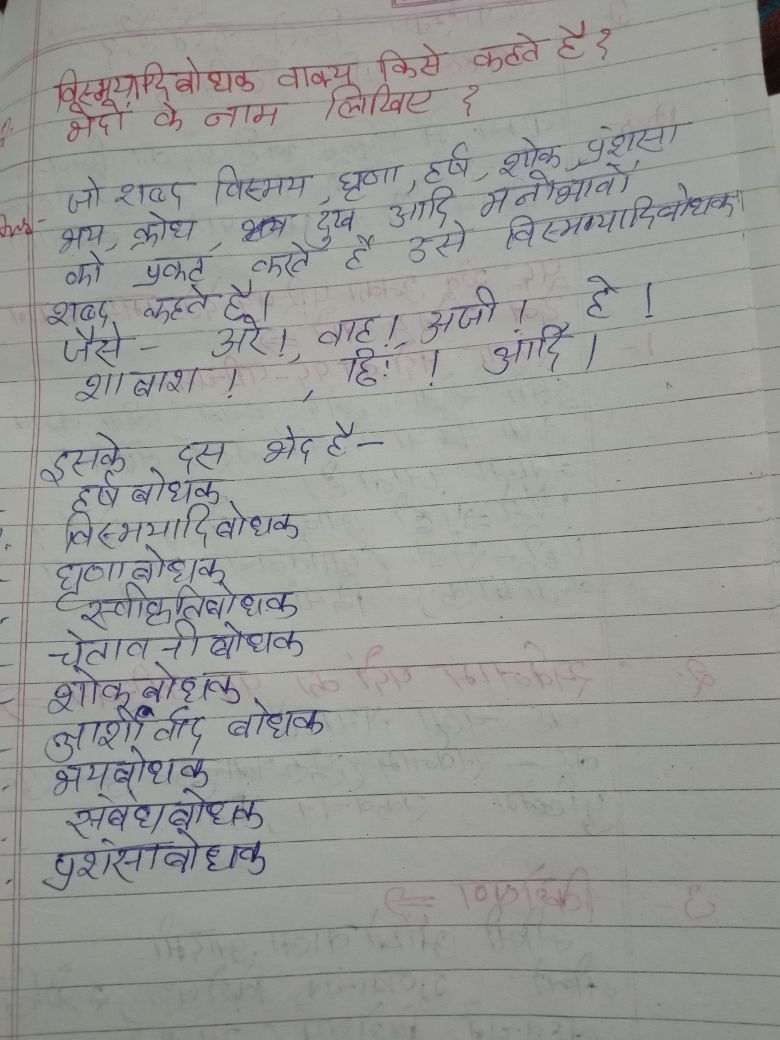 विस्मयादिबोधक वाक्य किसे कहते है ?
भेदों के नाम लिखिए ?
Ans - जो शब्द विस्मय, घृणा, हर्ष, शोक, प्रंशसा
भय, क्रोध, दुख आदि मनोभावों
को प्रकट करते है उसे विस्मयादिबोधक
शब्द कहते है।
जैसे - अरे!, वाह!, अजी! हे!
शाबाश! , छिः! आदि।
इसके दस भेद है -
हर्ष बोधक
विस्मयादिबोधक
घृणाबोधक
स्वीकृतिबोधक
चेतावनी बोधक
शोकबोधक
आर्शीवाद बोधक
भयबोधक
संबधबोधक
प्रशंसाबोधक